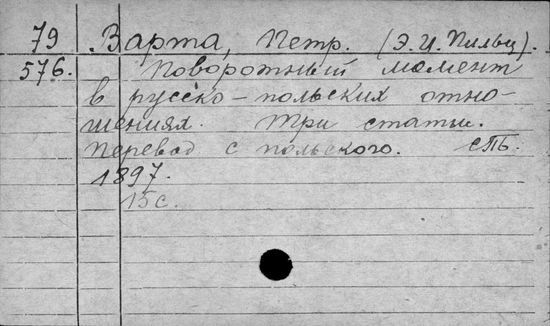 79 Варта, Петр. (Э. И. Пильц).
576. Поворотный момент
в русско-польских отно-
шениях. Три статьи.
Перевод с польского. СПБ.
1897.
15 с.